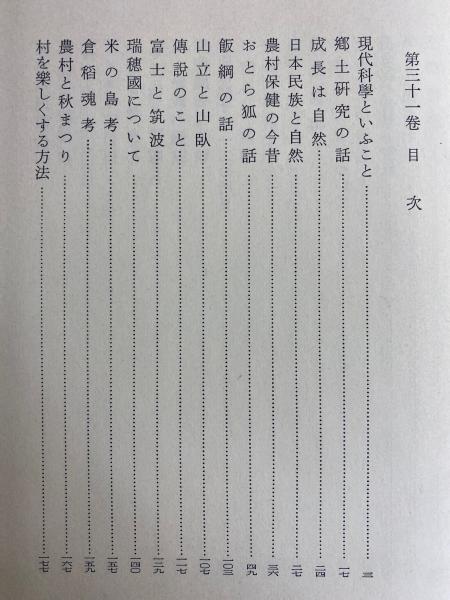 第三十一卷 目次
現代科學といふこと……三
郷土研究の話……一七
成長は自然……二四
日本民族と自然……二七
農村保健の今昔……三六
おとら狐の話……四九
飯綱の話……一〇三
山立と山臥……一〇七
傳說のこと……一一七
富士と筑波……一二九
瑞穗國について……一四〇
米の島考……一五七
倉稻魂考……一五九
農村と秋まつり……一六七
村を樂しくする方法……一七七